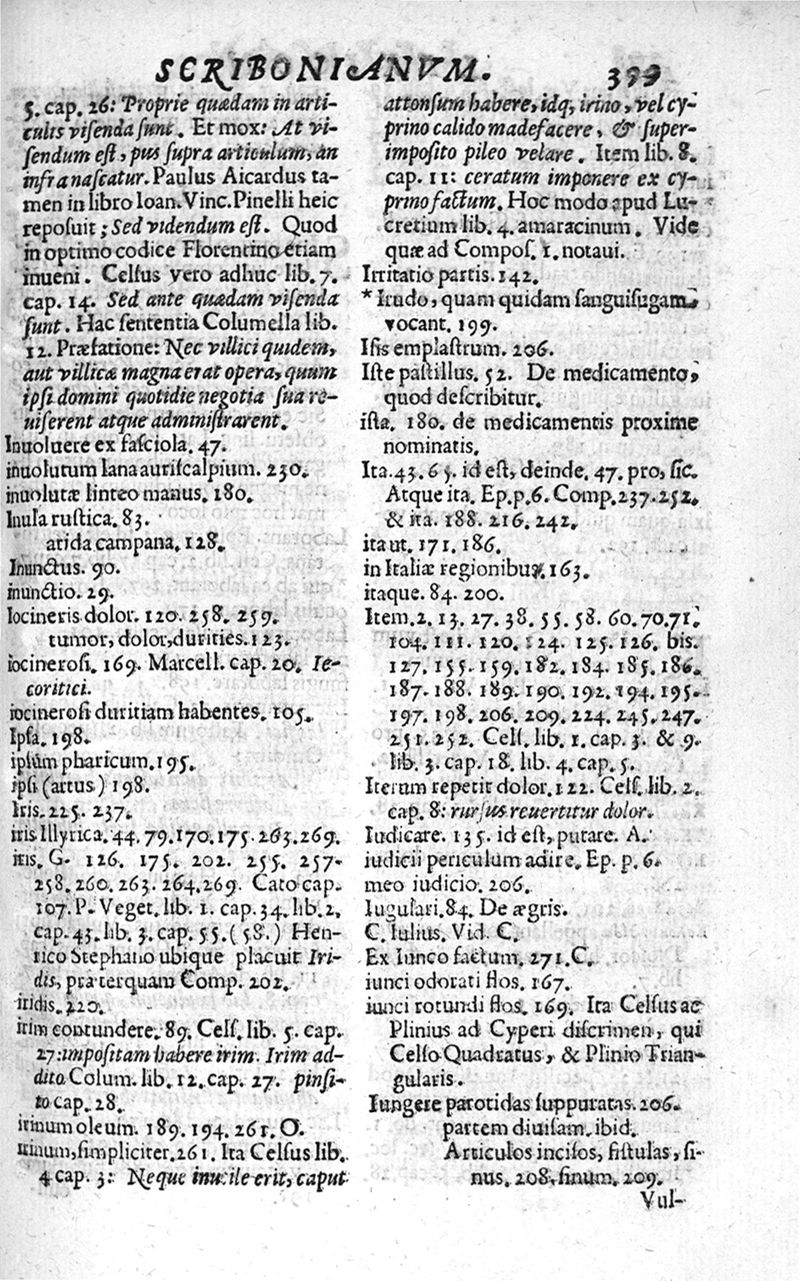 SCRIBONIANVM. 399
5. cap. 26: Proprie quædam in arti-
culis visenda sunt. Et mox: At vi-
sendum est, pus supra articulum, an
infra nascatur. Paulus Aicardus ta-
men in libro Ioan. Vinc. Pinelli heic
reposuit; Sed videndum est. Quod
in optimo codice Florentino etiam
inueni. Celsus vero adhuc lib. 7.
cap. 14. Sed ante quædam visenda
sunt. Hac sententia Columella lib.
12. Præfatione: Nec villici quidem,
aut villicæ magna erat opera, quum
ipsi domini quotidie negotia sua re-
uiserent atque administrarent.
Inuoluere ex fasciola. 47.
inuolutum lana auriscalpium. 230.
inuolutæ linteo manus. 180.
Inula rustica. 83.
arida campana. 128.
Inunctus. 90.
inunctio. 29.
Iocineris dolor. 120. 258. 259.
tumor, dolor, durities. 123.
iocinerosi. 169. Marcell. cap. 20. Ie-
coritici.
iocinerosi duritiam habentes. 105.
Ipsa. 198.
ipsum pharicum. 195.
ipsi (artus) 198.
Iris. 225. 237.
iris Illyrica. 44. 79. 170. 175. 263. 269.
iris. G. 126. 175. 202. 255. 257.
258. 260. 263. 264. 269. Cato cap.
107. P. Veget. lib. 1. cap. 34. lib. 2.
cap. 43. lib. 3. cap. 55. (58.) Hen-
rico Stephano ubique placuit Iri-
dis, præterquam Comp. 202.
iridis. 220.
irim contundere. 89. Cels. lib. 5. cap.
27: impositam habere irim. Irim ad-
dito Colum. lib. 12. cap. 27. pinsi-
to cap. 28.
irinum oleum. 189. 194. 261. O.
irinum, simpliciter. 261. Ita Celsus lib.
4 cap. 3: Neque inutile erit, caput
attonsum habere, idq, irino, vel cy-
prino calido madefacere, & super-
imposito pileo velare. Item lib. 8.
cap. 11: ceratum imponere ex cy-
prino factum. Hoc modo apud Lu-
cretium lib. 4. amaracinum. Vide
quæ ad Compos. 1. notaui.
Irritatio partis. 142.
* Irudo, quam quidam sanguisugam
vocant. 199.
Isis emplastrum. 206.
Iste pastillus. 52. De medicamento,
quod describitur.
ista. 180. de medicamentis proxime
nominatis.
Ita. 43. 65. id est, deinde. 47. pro, sic.
Atque ita. Ep. p. 6. Comp. 237. 252.
& ita. 188. 216. 242.
ita ut. 171. 186.
in Italiæ regionibus. 163.
itaque. 84. 200.
Item. 2. 13. 27. 38. 55. 58. 60. 70. 71.
104. 111. 120. 124. 125. 126. bis.
127. 155. 159. 182. 184. 185. 186.
187. 188. 189. 190. 192. 194. 195.
197. 198. 206. 209. 224. 245. 247.
251. 252. Cels. lib. 1. cap. 3. & 9.
lib. 3. cap. 18. lib. 4. cap. 5.
Iterum repetit dolor. 122. Cels. lib. 2.
cap. 8: rursus reuertitur dolor.
Iudicare. 135. id est, putare. A.
iudicii periculum adire. Ep. p. 6.
meo iudicio. 206.
Iugulari. 84. De ægris.
C. Iulius. Vid. C.
Ex Iunco factum. 271. C.
iunci odorati flos. 167.
iunci rotundi flos. 169. Ita Celsus ac
Plinius ad Cyperi discrimen, qui
Celso Quadratus, & Plinio Trian-
gularis.
Iungere parotidas suppuratas. 206.
partem diuisam. ibid.
Articulos incisos, fistulas, si-
nus. 208. sinum. 209.
Vul-